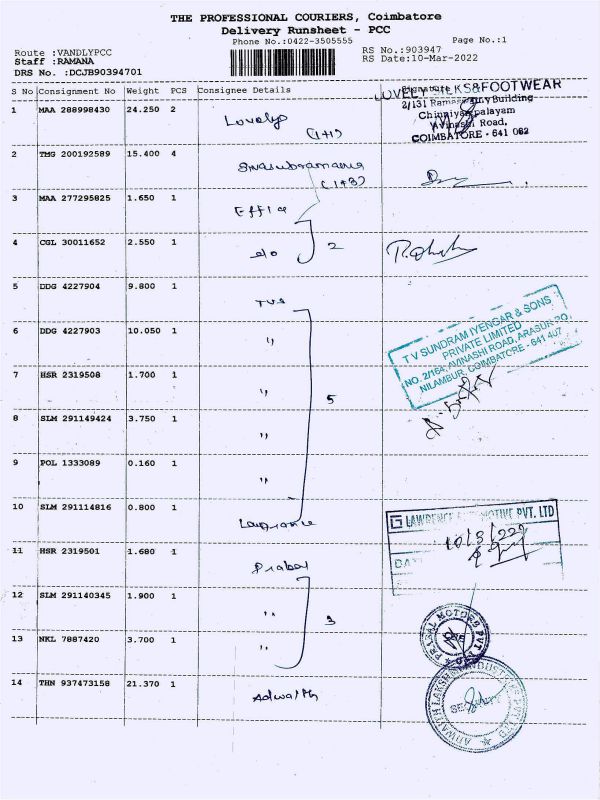 THE PROFESSIONAL COURIERS, Coimbatore
Delivery Runsheet - PCC
Phone No.:0422-3505555
Page No.:1
Route :VANDLYPCC
RS No.:903947
Staff :RAMANA
RS Date:10-Mar-2022
DRS No. :DCJB90394701
S No Consignment No Weight PCS Consignee Details Signature
1 MAA 288998430 24.250 2 Lovelys
(1+1)
LOVELY SILKS&FOOTWEAR
2/131 Ramaswamy Building
Chinniyampalayam
Avinashi Road,
COIMBATORE - 641 062
2 TMG 200192589 15.400 4
(1+3)
3 MAA 277295825 1.650 1 Effica
4 CGL 30011652 2.550 1 do 2
5 DDG 4227904 9.800 1 TVS
6 DDG 4227903 10.050 1 "
T V SUNDRAM IYENGAR & SONS
PRIVATE LIMITED
NO. 2/164, AVINASHI ROAD, ARASUR PO
NILAMBUR, COIMBATORE - 641 407
7 HSR 2319508 1.700 1 " 5
8 SLM 291149424 3.750 1 "
9 POL 1333089 0.160 1 "
10 SLM 291114816 0.800 1
LAWRENCE AUTOMOTIVE PVT. LTD
10/3/22
11 HSR 2319501 1.680 1 Prabal
12 SLM 291140345 1.900 1 " 3
13 NKL 7887420 3.700 1 "
PRABAL MOTORS PVT
14 THN 937473158 21.370 1 Adwaith